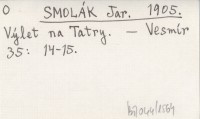 O
SMOLÁK Jar. 1905.
Výlet na Tatry. — Vesmír
35: 14-15.